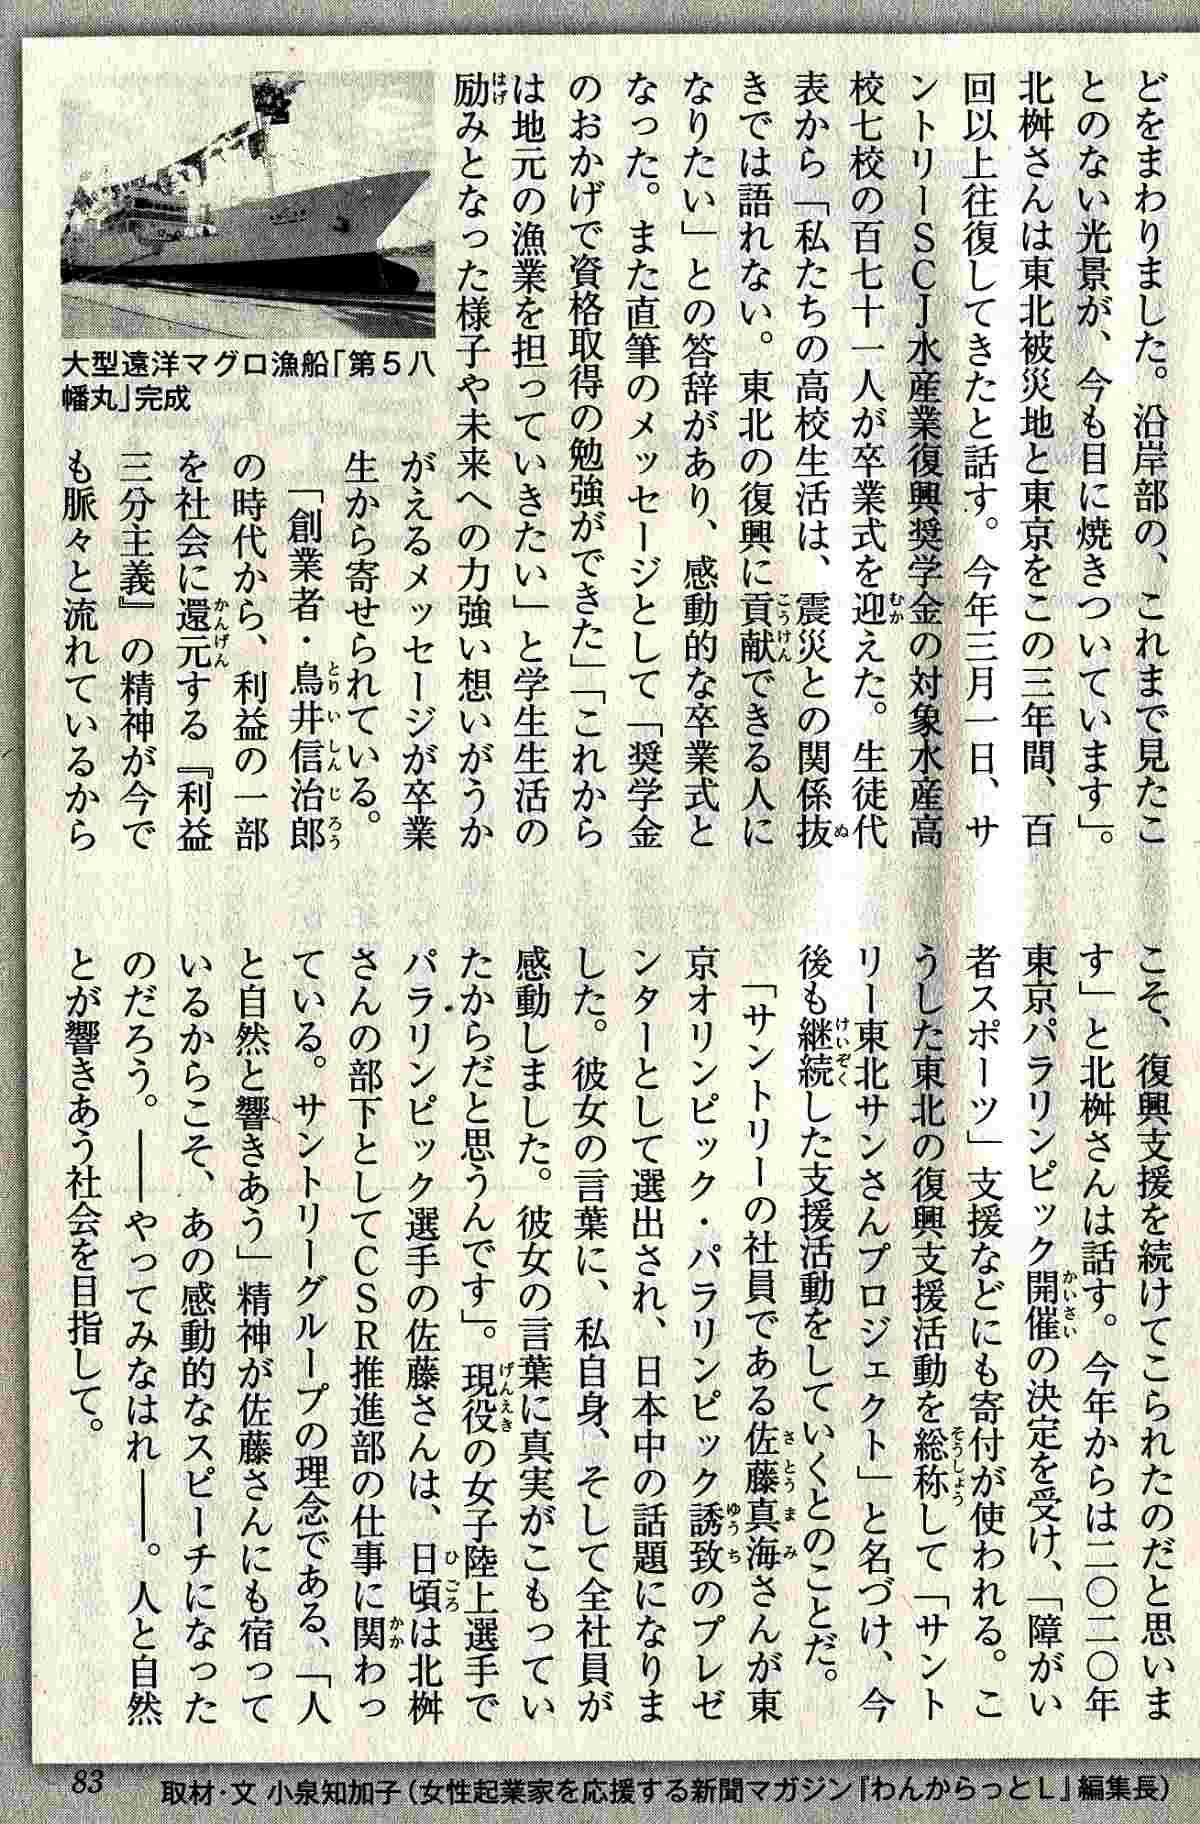 どをまわりました。沿岸部の、これまで見たこ
とのない光景が、今も目に焼きついています」。
北桝さんは東北被災地と東京をこの三年間、百
回以上往復してきたと話す。今年三月一日、サ
ントリーSCJ水産業復興奨学金の対象水産高
校七校の百七十一人が卒業式を迎えた。生徒代
表から「私たちの高校生活は、震災との関係抜
きでは語れない。東北の復興に貢献できる人に
なりたい」との答辞があり、感動的な卒業式と
なった。また直筆のメッセージとして「奨学金
のおかげで資格取得の勉強ができた」「これから
は地元の漁業を担っていきたい」と学生生活の
励みとなった様子や未来への力強い想いがうか
がえるメッセージが卒業
生から寄せられている。
「創業者・鳥井信治郎
の時代から、利益の一部
を社会に還元する『利益
三分主義』の精神が今で
も脈々と流れているから
大型遠洋マグロ漁船「第5八
幡丸」完成
こそ、復興支援を続けてこられたのだと思いま
す」と北桝さんは話す。今年からは二〇二〇年
東京パラリンピック開催の決定を受け、「障がい
者スポーツ」支援などにも寄付が使われる。こ
うした東北の復興支援活動を総称して「サント
リー東北サンさんプロジェクト」と名づけ、今
後も継続した支援活動をしていくとのことだ。
「サントリーの社員である佐藤真海さんが東
京オリンピック・パラリンピック誘致のプレゼ
ンターとして選出され、日本中の話題になりま
した。彼女の言葉に、私自身、そして全社員が
感動しました。彼女の言葉に真実がこもってい
たからだと思うんです」。現役の女子陸上選手で
パラリンピック選手の佐藤さんは、日頃は北桝
さんの部下としてCSR推進部の仕事に関わっ
ている。サントリーグループの理念である、「人
と自然と響きあう」精神が佐藤さんにも宿って
いるからこそ、あの感動的なスピーチになった
のだろう。――やってみなはれ――。人と自然
とが響きあう社会を目指して。
83
取材・文 小泉知加子（女性起業家を応援する新聞マガジン『わんからっとL』編集長）